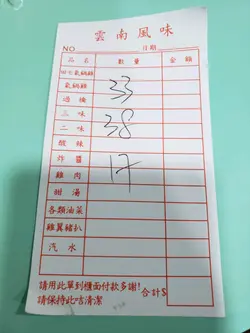 雲南風味
NO 日期
品名 數量 金額
田七氣鍋雞
氣鍋雞 33
過橋
三味 38
二味
酸辣
炸醬 17
雞肉
甜湯
各類油菜
雞翼豬扒
汽水
請用此單到櫃面付款多謝! 合計$
請保持此咭清潔